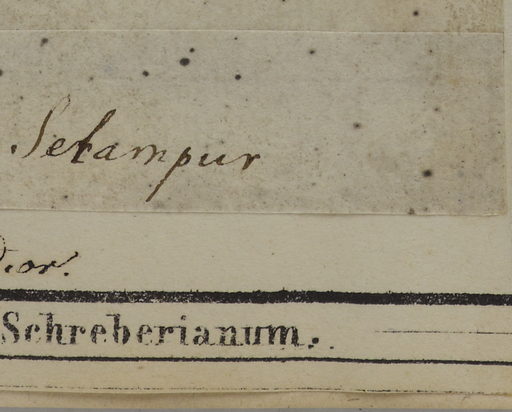 Setampur
Schreberianum.